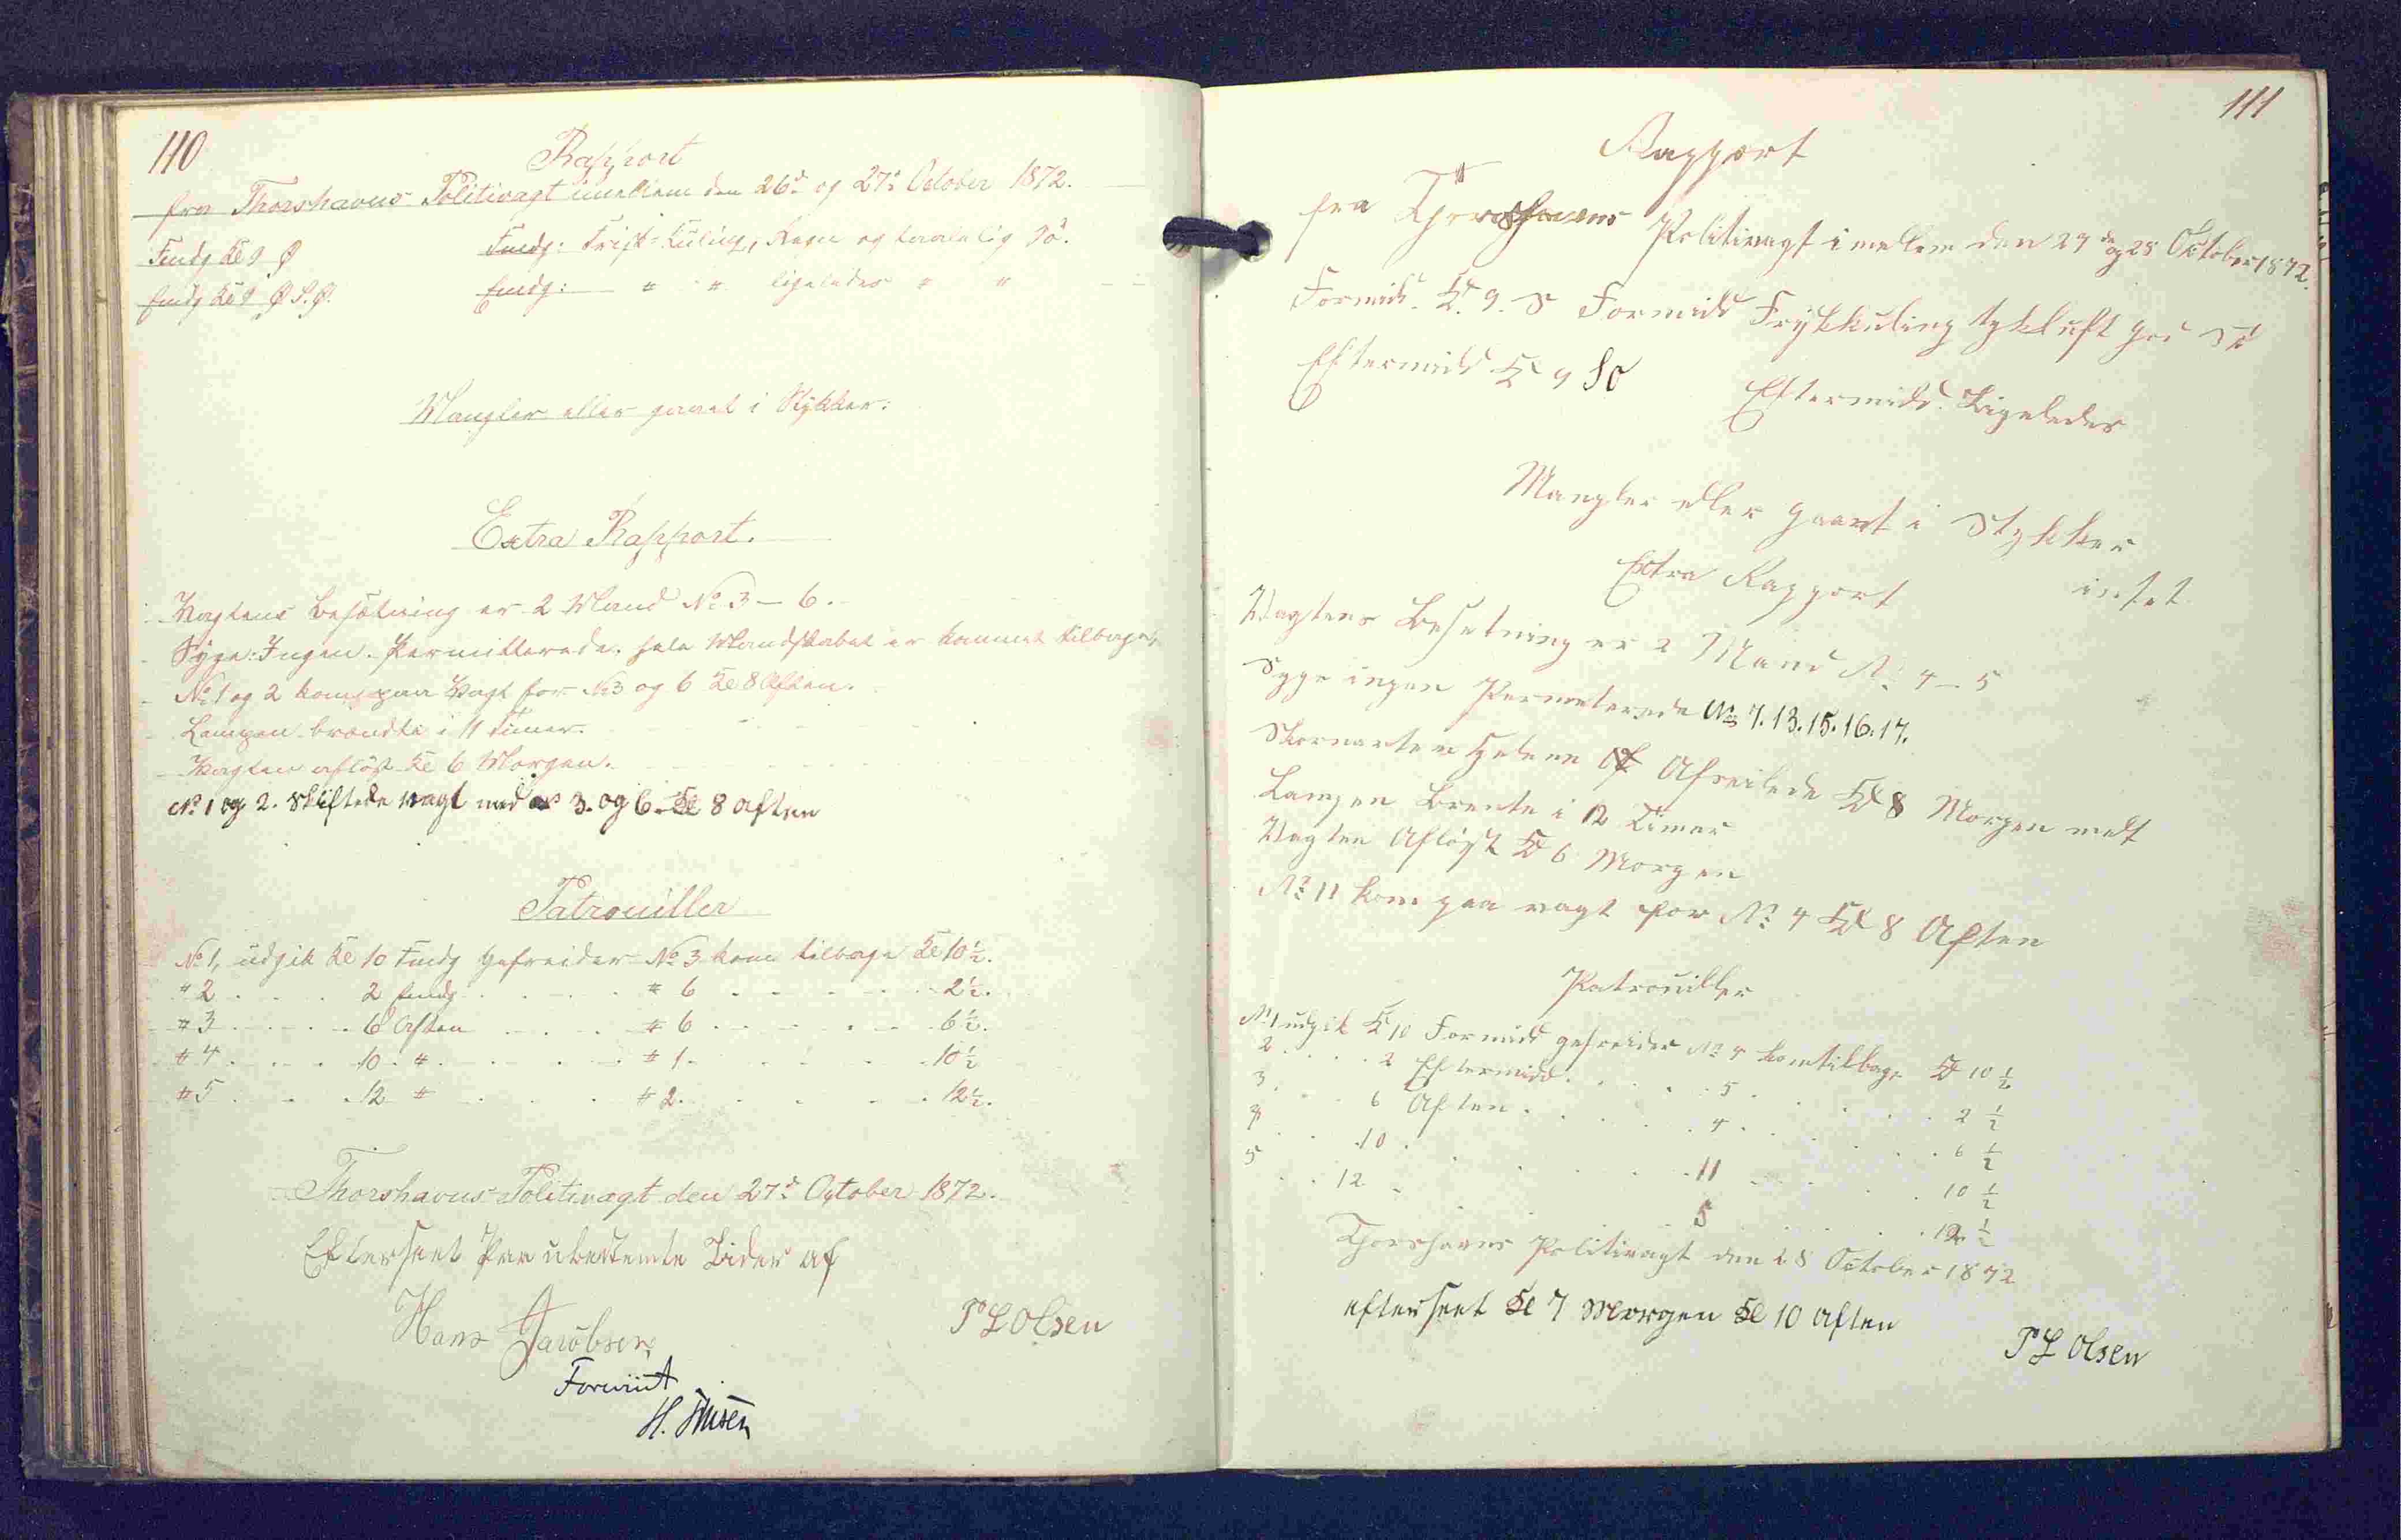 110
Rapport
fra Thorshavns Politivagt imellem den 26d og 27d October 1872.
Fmdg Kl 9 Ø Fmdg: Frisk-Kuling, Regn og taalelig Sö.
Emdg Kl 9 Ø.S.Ø. Emdg: " " ligeledes " "
Mangler eller gaaet i Stykker:
Extra Rapport.
Vagtens Besætning er 2 Mand No 3 - 6.
Syge: Ingen. Permitterede: hele Mandskabet er kommet tilbage.
No 1 og 2 kom paa Vagt for No 3 og 6 Kl 8 Aften.
Lampen brændte i 11 Timer.
Vagten aflöst Kl 6 Morgen.
No 1 og 2. Skiftede vagt med no 3. og 6. Kl 8 aften
Patrouiller
No 1, udgik Kl 10 Fmdg Gefreider No 3 kom tilbage Kl 10½.
" 2 . . . . 2 Emdg . . . . " 6 . . . . . 2½.
" 3 . . . . 6 Aften . . . . " 6 . . . . . 6½.
" 4 . . . . 10 " . . . . " 1 . . . . . 10½
" 5 . . . . 12 " . . . . " 2 . . . . . 12½.
Thorshavns Politivagt den 27d October 1872.
Efterseet Paa ubestemte Tider af
Hans Jacobsen P L Olsen
Forevist
H.
111
Rapport
fra Thorshavns Politivagt imellem den 27de og 28 October 1872.
Formidd. Kl. 9. S Formidd Friskkuling tykluft god Sö
Eftermidd. Kl 9 SO Eftermidd. Ligeledes
Mangler eller gaaet i Stykker
intet
Extra Rapport
Vagtens Besetning er 2 Mand No 4 - 5
Syge ingen Permeterede No 7. 13. 15. 16. 17.
Skonnerten Helene Afseilede Kl 8 Morgen
Lampen Brente i 12 Timer
Vagten Aflöst Kl 6 Morgen
No 11 kom paa vagt for No 4 Kl 8 Aften
Patrouiller
No 1 udgik Kl 10 Formidd gefreider No 4 kom tilbage Kl 10 ½
2 . . . . 2 Eftermidd . . . . 5 . . . . 2 ½
3 . . . . 6 Aften . . . . 4 . . . . 6 ½
4 . . . . 10 . . . . 11 . . . . 10 ½
5 . . . . 12 . . . . 5 . . . . 12 ½
Thorshavns Politivagt den 28 October 1872
efterseet Kl 7 Morgen Kl 10 aften
P L Olsen